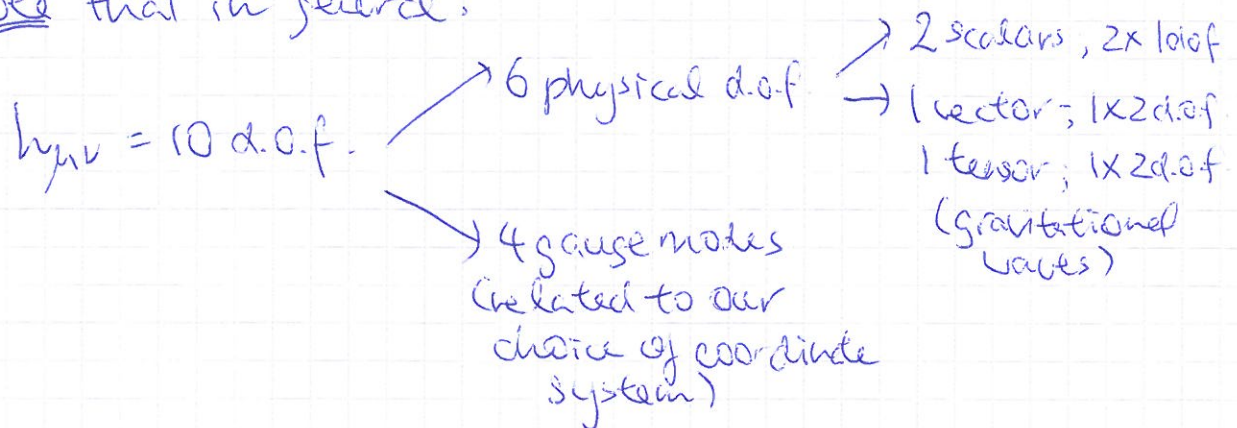 Note that in general:
h_μν = 10 d.o.f.
6 physical d.o.f
2 scalars, 2x1d.o.f
1 vector; 1x2d.o.f
1 tensor; 1x2d.o.f
(gravitational
waves)
4 gauge modes
(related to our
choice of coordinate
system)